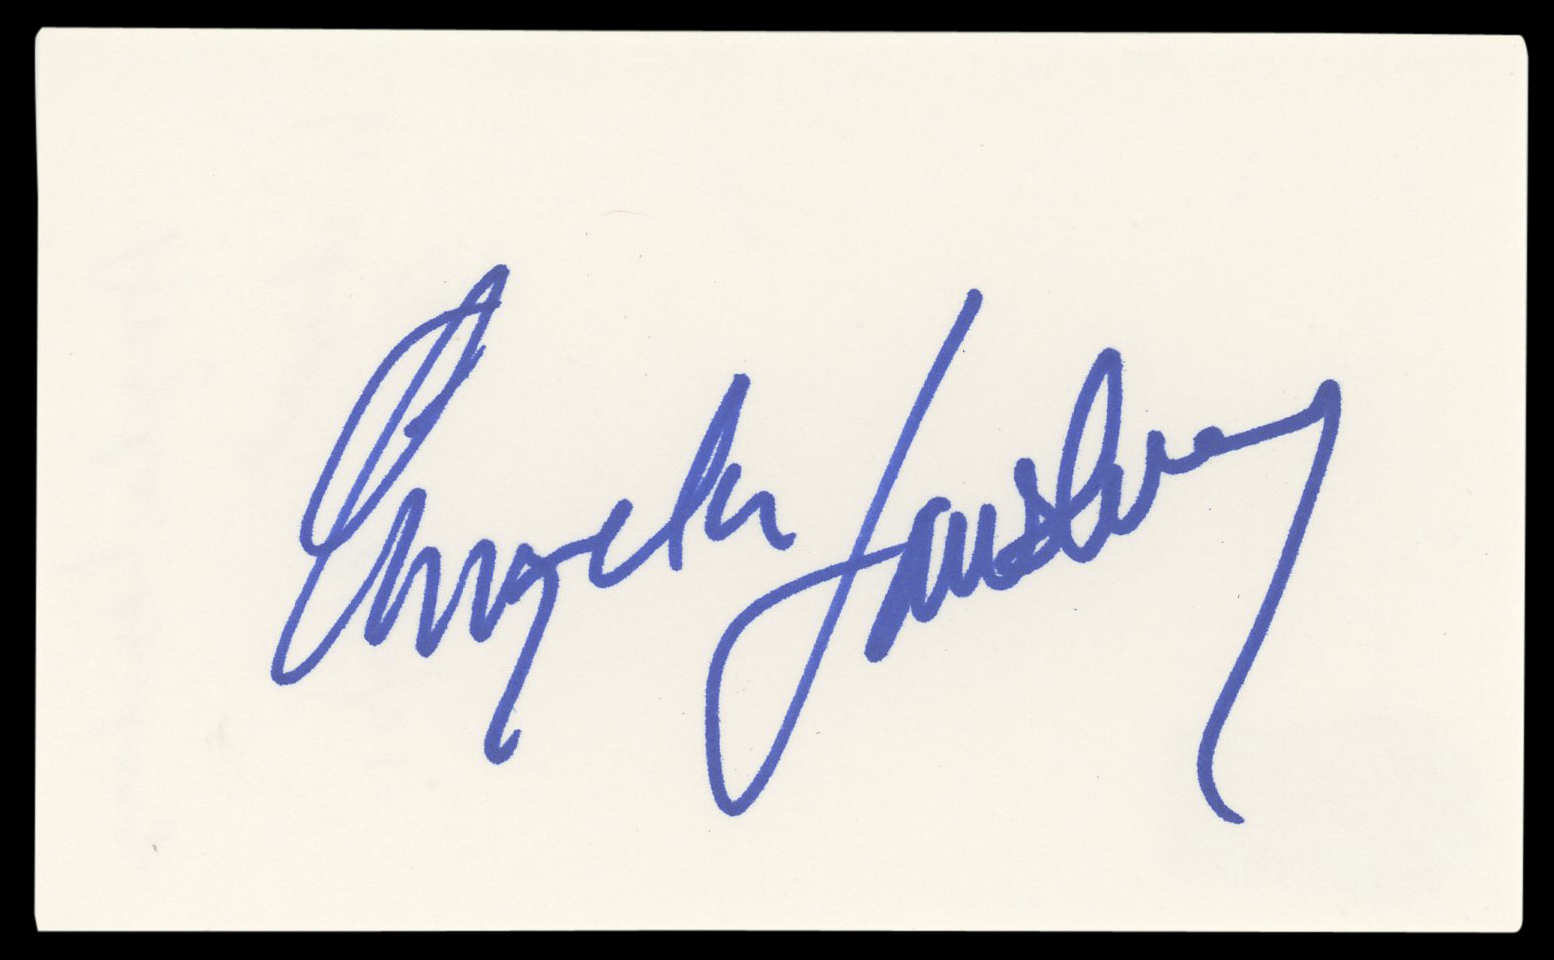 Angela Lansbury